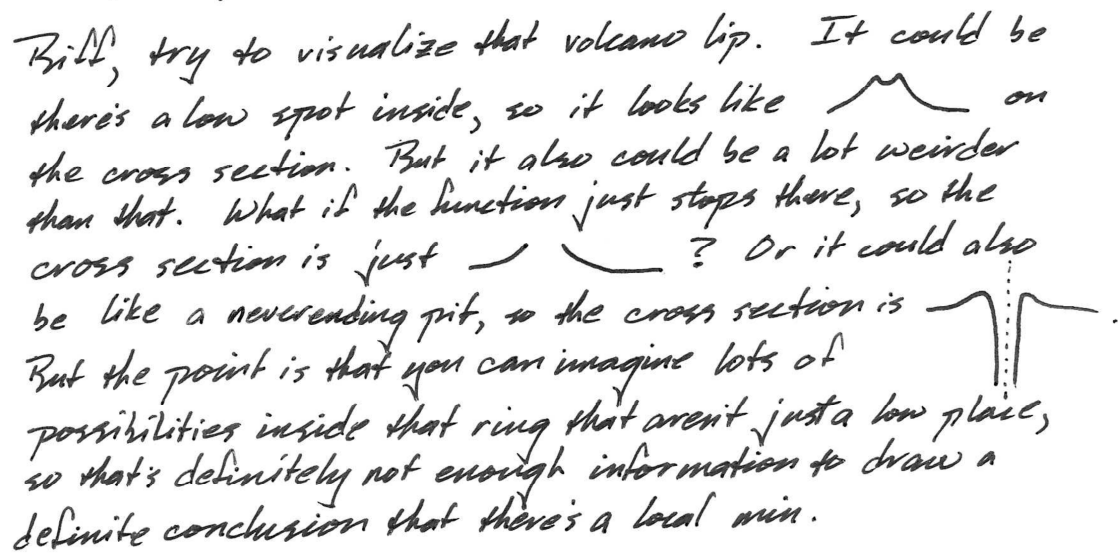 Biff, try to visualize that volcano lip. It could be
there's a low spot inside, so it looks like on
the cross section. But it also could be a lot weirder
than that. What if the function just stops there, so the
cross section is just ? Or it could also
be like a neverending pit, so the cross section is .
But the point is that you can imagine lots of
possibilities inside that ring that aren't just a low place,
so that's definitely not enough information to draw a
definite conclusion that there's a local min.